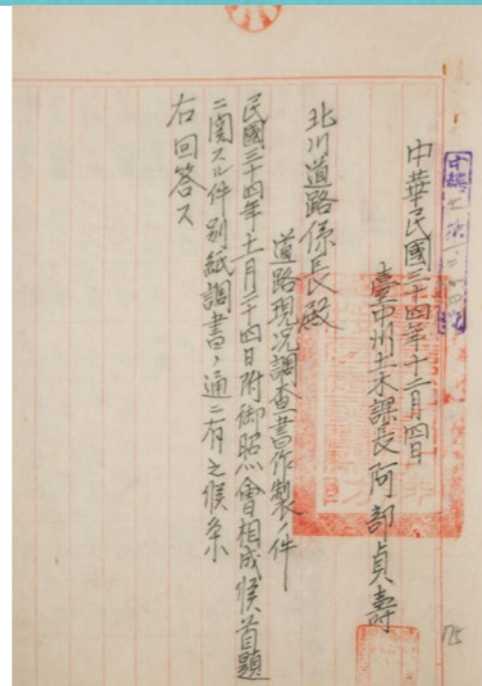 中華民國三十四年十二月四日
臺中州土木課長阿部貞壽
北川道路係長殿
道路現況調查書作製ノ件
民國三十四年十一月二十四日附御照會相成候首題
ニ関スル件別紙調書ノ通ニ有之候条
右回答ス
175